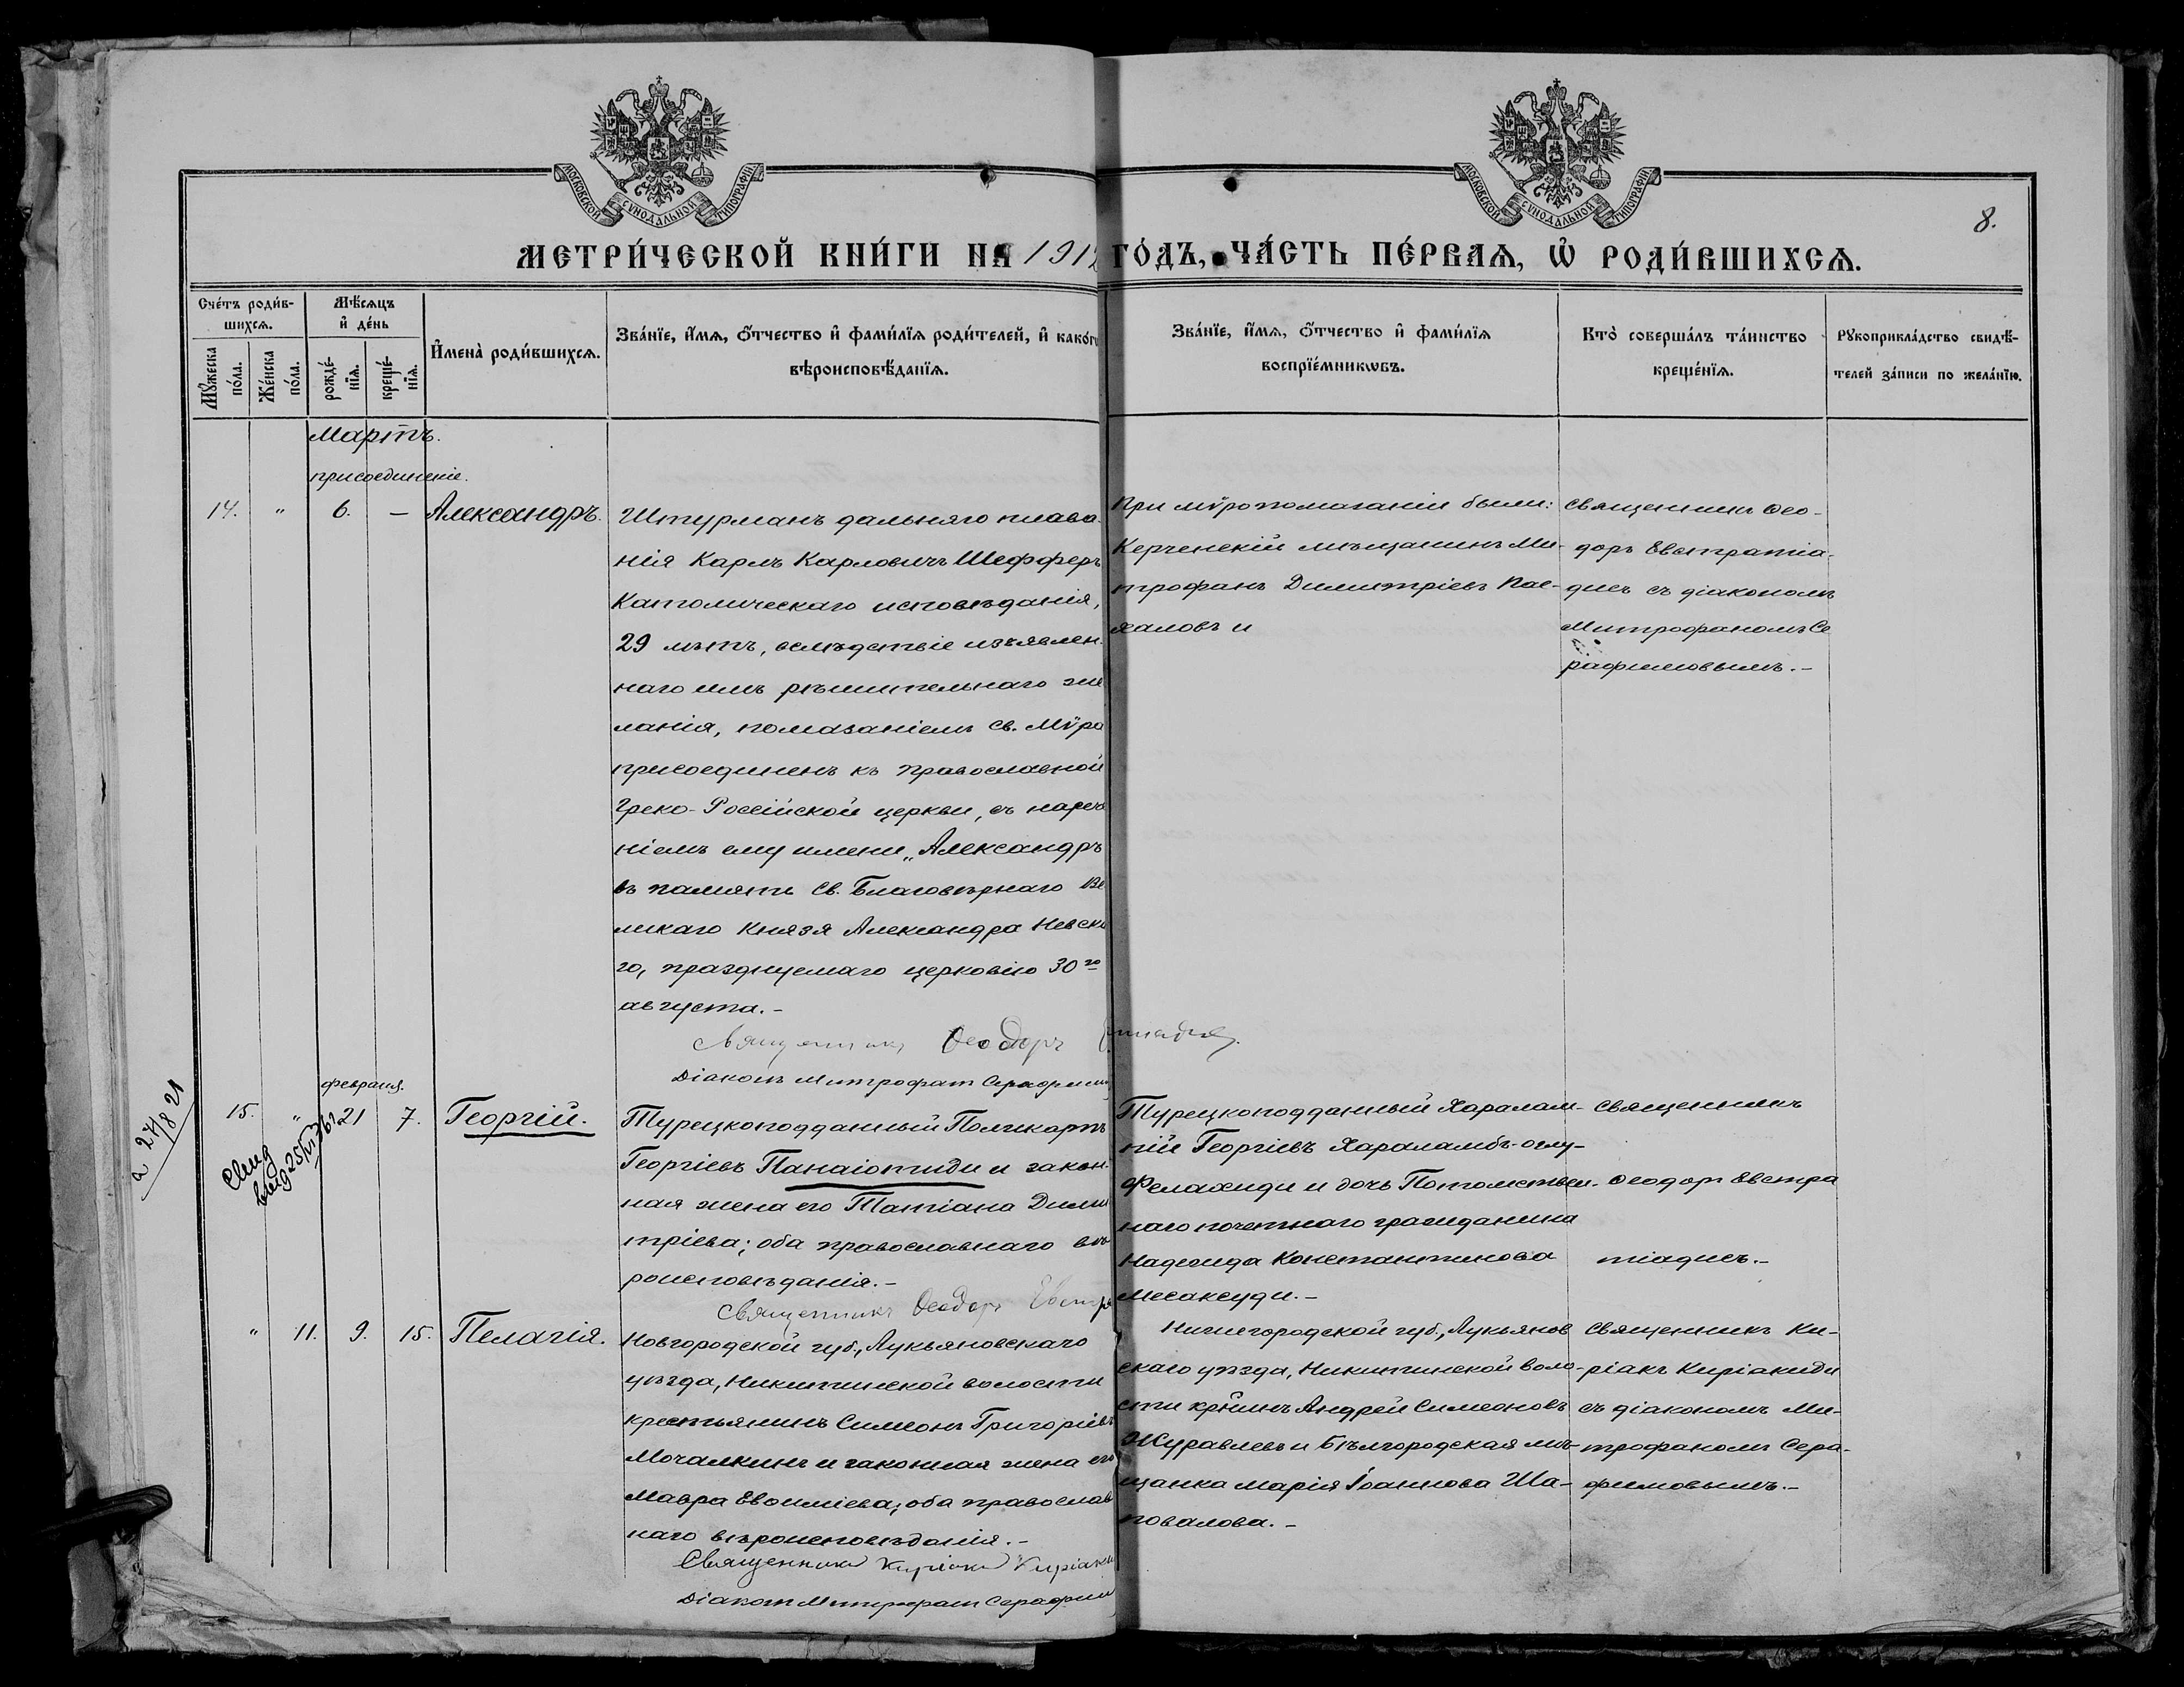 МОСКОВСКОЙ СѴНОДАЛЬНОЙ ТИПОГРАФІИ
МОСКОВСКОЙ СѴНОДАЛЬНОЙ ТИПОГРАФІИ
8.
МЕТРИ́ЧЕСКОЙ КНИ́ГИ НА 1912 ГО́ДЪ, ЧА́СТЬ ПЕ́РВАЯ, Ѡ҆ РОДИ́ВШИХСѦ.
Сче́тъ роди́вшихсѧ.
Мꙋ́жеска по́ла.
Же́нска по́ла.
Мѣ́сѧцъ и҆ де́нь
рожде́нїѧ.
креще́нїѧ.
И҆мена̀ роди́вшихсѧ.
Зва́нїе, и҆́мѧ, ѻ҆́тчество и҆ фами́лїѧ роди́телей, и҆ како́гѡ
вѣроисповѣ́данїѧ.
Зва́нїе, и҆́мѧ, ѻ҆́тчество и҆ фами́лїѧ
воспрїе́мникѡвъ.
Кто̀ соверша́лъ та́инство
креще́нїѧ.
Рꙋкоприкла́дство свидѣ́-
телей за́писи по жела́нїю.
Мартъ.
присоединеніе.
14. " 6. — Александръ.
Штурманъ дальняго плава-
нія Карлъ Карловичъ Шефферъ
Католическаго исповѣданія,
29 лѣтъ, вслѣдствіе изъявлен-
наго имъ рѣшительнаго же
ланія, помазаніемъ Св. Мѵра
присоединенъ къ православной
Греко-Россійской церкви, съ нарече
ніемъ ему имени „Александръ
въ память Св. Благовѣрнаго Ве
ликаго Князя Александра Невска
го, празднуемаго церковію 30го
августа.-
Священникъ Ѳеодоръ
Діаконъ Митрофанъ Серафимов
При мѵропомазаніи были:
Керченскій мѣщанинъ Ми-
трофанъ Димитріевъ Пас-
халовъ и
Священникъ Ѳео-
доръ Евстратіа-
дисъ съ діакономъ
Митрофаномъ Се
рафимовымъ.-
февраля.
а 27/8 21
15. " 21 7. Георгій.
Свид
выд 25/VI
Турецкоподданный Поликарпъ
Георгіевъ Панаіотиди и закон-
ная жена его Татіана Дими
тріева; оба православнаго вѣ
роисповѣданія.-
Священникъ Ѳеодоръ Евстра
Турецкоподданный Харалам-
пій Георгіевъ Хараламбъ-оглу-
Фелахиди и дочь Потомствен-
наго почетнаго гражданина
Надежда Константинова
Месаксуди.-
Священникъ
Ѳеодоръ Евстра
тіадисъ.-
" 11. 9. 15. Пелагія.
Новгородской губ., Лукьяновскаго
уѣзда, Никитинской волости
крестьянинъ Симеонъ Григоріевъ
Мочалкинъ и законная жена его
Мавра Евѳиміева; оба православ
наго вѣроисповѣданія.-
Священникъ Киріакъ Киріаки
Діаконъ Митрофанъ Серафим
Нижегородской губ., Лукьянов
скаго уѣзда, Никитинской воло-
сти кр̃нинъ Андрей Симеоновъ
Журавлевъ и Бѣлгородская мѣ-
щанка Марія Іоаннова Ша-
повалова.-
Священникъ Ки-
ріакъ Киріакиди
съ діакономъ Ми-
трофаномъ Сера-
фимовымъ.-